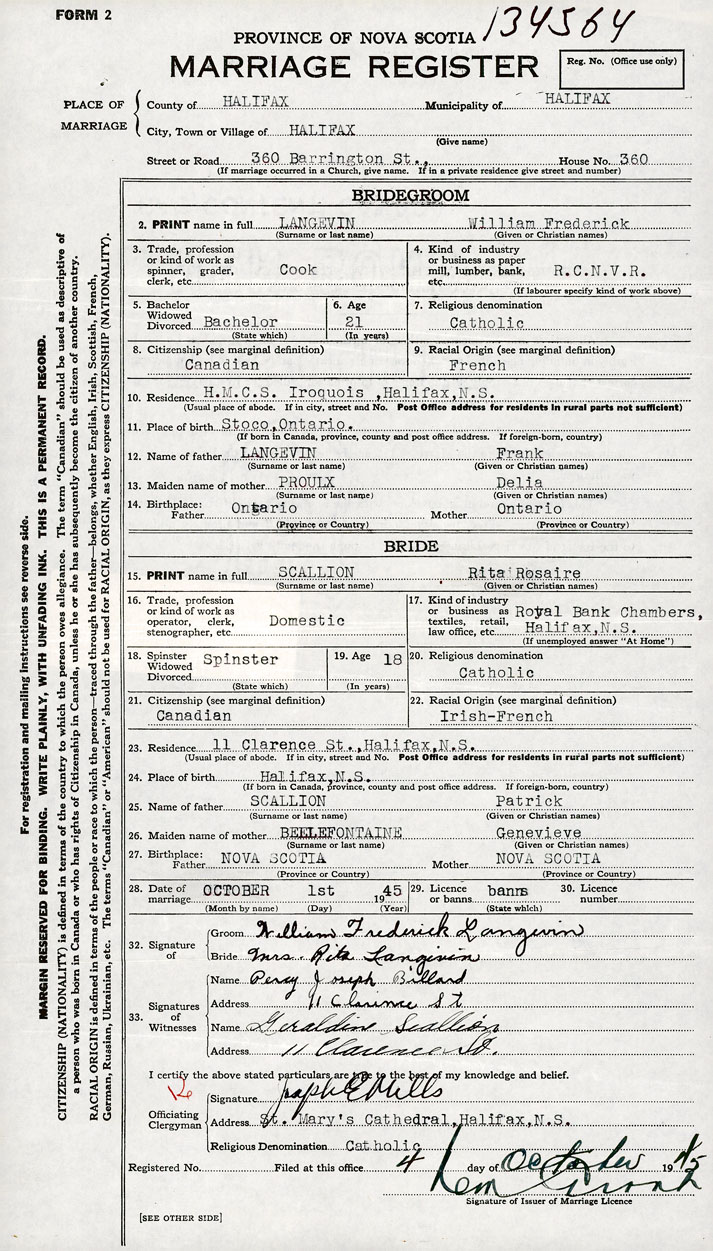 FORM 2
134564
PROVINCE OF NOVA SCOTIA
MARRIAGE REGISTER
Reg. No. (Office use only)
PLACE OF MARRIAGE
County of HALIFAX Municipality of HALIFAX
City, Town or Village of HALIFAX
(Give name)
Street or Road 360 Barrington St., House No. 360
(If marriage occurred in a Church, give name. If in a private residence give street and number)
BRIDEGROOM
2. PRINT name in full LANGEVIN William Frederick
(Surname or last name) (Given or Christian names)
3. Trade, profession or kind of work as spinner, grader, clerk, etc. Cook
4. Kind of industry or business as paper mill, lumber, bank, etc. R.C.N.V.R.
(If labourer specify kind of work above)
5. Bachelor Widowed Divorced Bachelor
(State which)
6. Age 21
(In years)
7. Religious denomination
Catholic
8. Citizenship (see marginal definition)
Canadian
9. Racial Origin (see marginal definition)
French
10. Residence H.M.C.S. Iroquois ,Halifax,N.S.
(Usual place of abode. If in city, street and No. Post Office address for residents in rural parts not sufficient)
11. Place of birth Stoco,Ontario.
(If born in Canada, province, county and post office address. If foreign-born, country)
12. Name of father LANGEVIN Frank
(Surname or last name) (Given or Christian names)
13. Maiden name of mother PROULX Delia
(Surname or last name) (Given or Christian names)
14. Birthplace: Father Ontario Mother Ontario
(Province or Country) (Province or Country)
BRIDE
15. PRINT name in full SCALLION Rita Rosaire
(Surname or last name) (Given or Christian names)
16. Trade, profession or kind of work as operator, clerk, stenographer, etc. Domestic
17. Kind of industry or business as textiles, retail, law office, etc. Royal Bank Chambers, Halifax,N.S.
(If unemployed answer "At Home")
18. Spinster Widowed Divorced Spinster
(State which)
19. Age 18
(In years)
20. Religious denomination
Catholic
21. Citizenship (see marginal definition)
Canadian
22. Racial Origin (see marginal definition)
Irish-French
23. Residence 11 Clarence St.,Halifax,N.S.
(Usual place of abode. If in city, street and No. Post Office address for residents in rural parts not sufficient)
24. Place of birth Halifax,N.S.
(If born in Canada, province, county and post office address. If foreign-born, country)
25. Name of father SCALLION Patrick
(Surname or last name) (Given or Christian names)
26. Maiden name of mother BEELEFONTAINE Genevieve
(Surname or last name) (Given or Christian names)
27. Birthplace: Father NOVA SCOTIA Mother NOVA SCOTIA
(Province or Country) (Province or Country)
28. Date of marriage OCTOBER 1st 1945
(Month by name) (Day) (Year)
29. Licence or banns banns
(State which)
30. Licence number
32. Signature of
Groom William Frederick Langevin
Bride Mrs. Rita Langevin
33. Signatures of Witnesses
Name Percy Joseph Billard
Address 11 Clarence St
Name Geraldine Scallion
Address 11 Clarence St.
I certify the above stated particulars are true to the best of my knowledge and belief.
Officiating Clergyman
Signature Joseph E Mills
Address St. Mary's Cathedral,Halifax,N.S.
Religious Denomination Catholic
Registered No. Filed at this office 4 day of October 1945
Signature of Issuer of Marriage Licence
[SEE OTHER SIDE]
For registration and mailing instructions see reverse side.
MARGIN RESERVED FOR BINDING. WRITE PLAINLY, WITH UNFADING INK. THIS IS A PERMANENT RECORD.
CITIZENSHIP (NATIONALITY) is defined in terms of the country to which the person owes allegiance. The term "Canadian" should be used as descriptive of
a person who was born in Canada or who has rights of Citizenship in Canada, unless he or she has subsequently become the citizen of another country.
RACIAL ORIGIN is defined in terms of the people or race to which the person—traced through the father—belongs, whether English, Irish, Scottish, French,
German, Russian, Ukrainian, etc. The terms "Canadian" or "American" should not be used for RACIAL ORIGIN, as they express CITIZENSHIP (NATIONALITY).